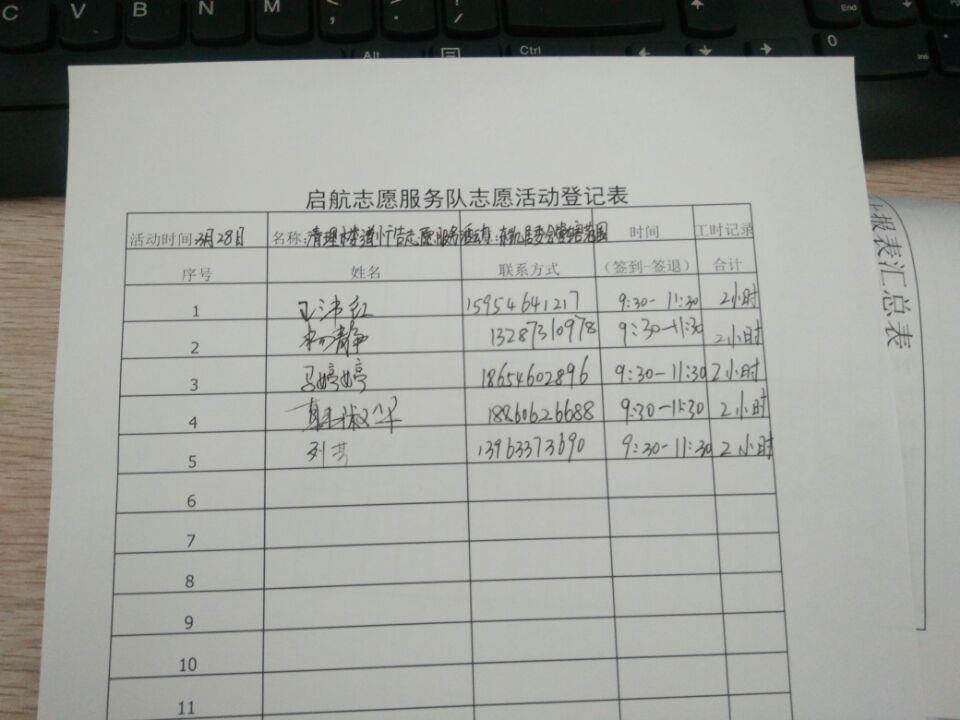 C V B N M
Alt Ctrl End 0 Ins
启航志愿服务队志愿活动登记表
活动时间:3月28日 名称:清理楼道小广告志愿服务活动 时间 工时记录
序号 姓名 联系方式 (签到-签退) 合计
1 15954641217 9:30-11:30 2小时
2 杨静 13287310978 9:30-11:30 2小时
3 马婷婷 18654602896 9:30-11:30 2小时
4 18860626688 9:30-11:30 2小时
5 13963373690 9:30-11:30 2小时
6
7
8
9
10
11
报表汇总表